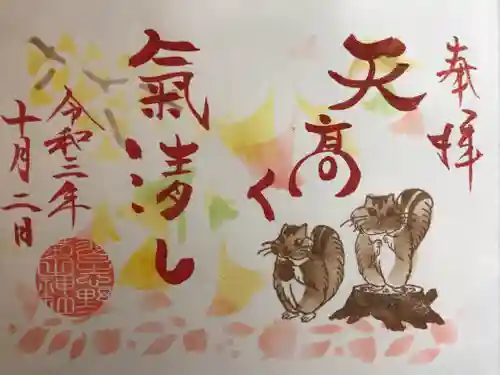 奉拝
天高く
氣清し
令和三年
十月二日